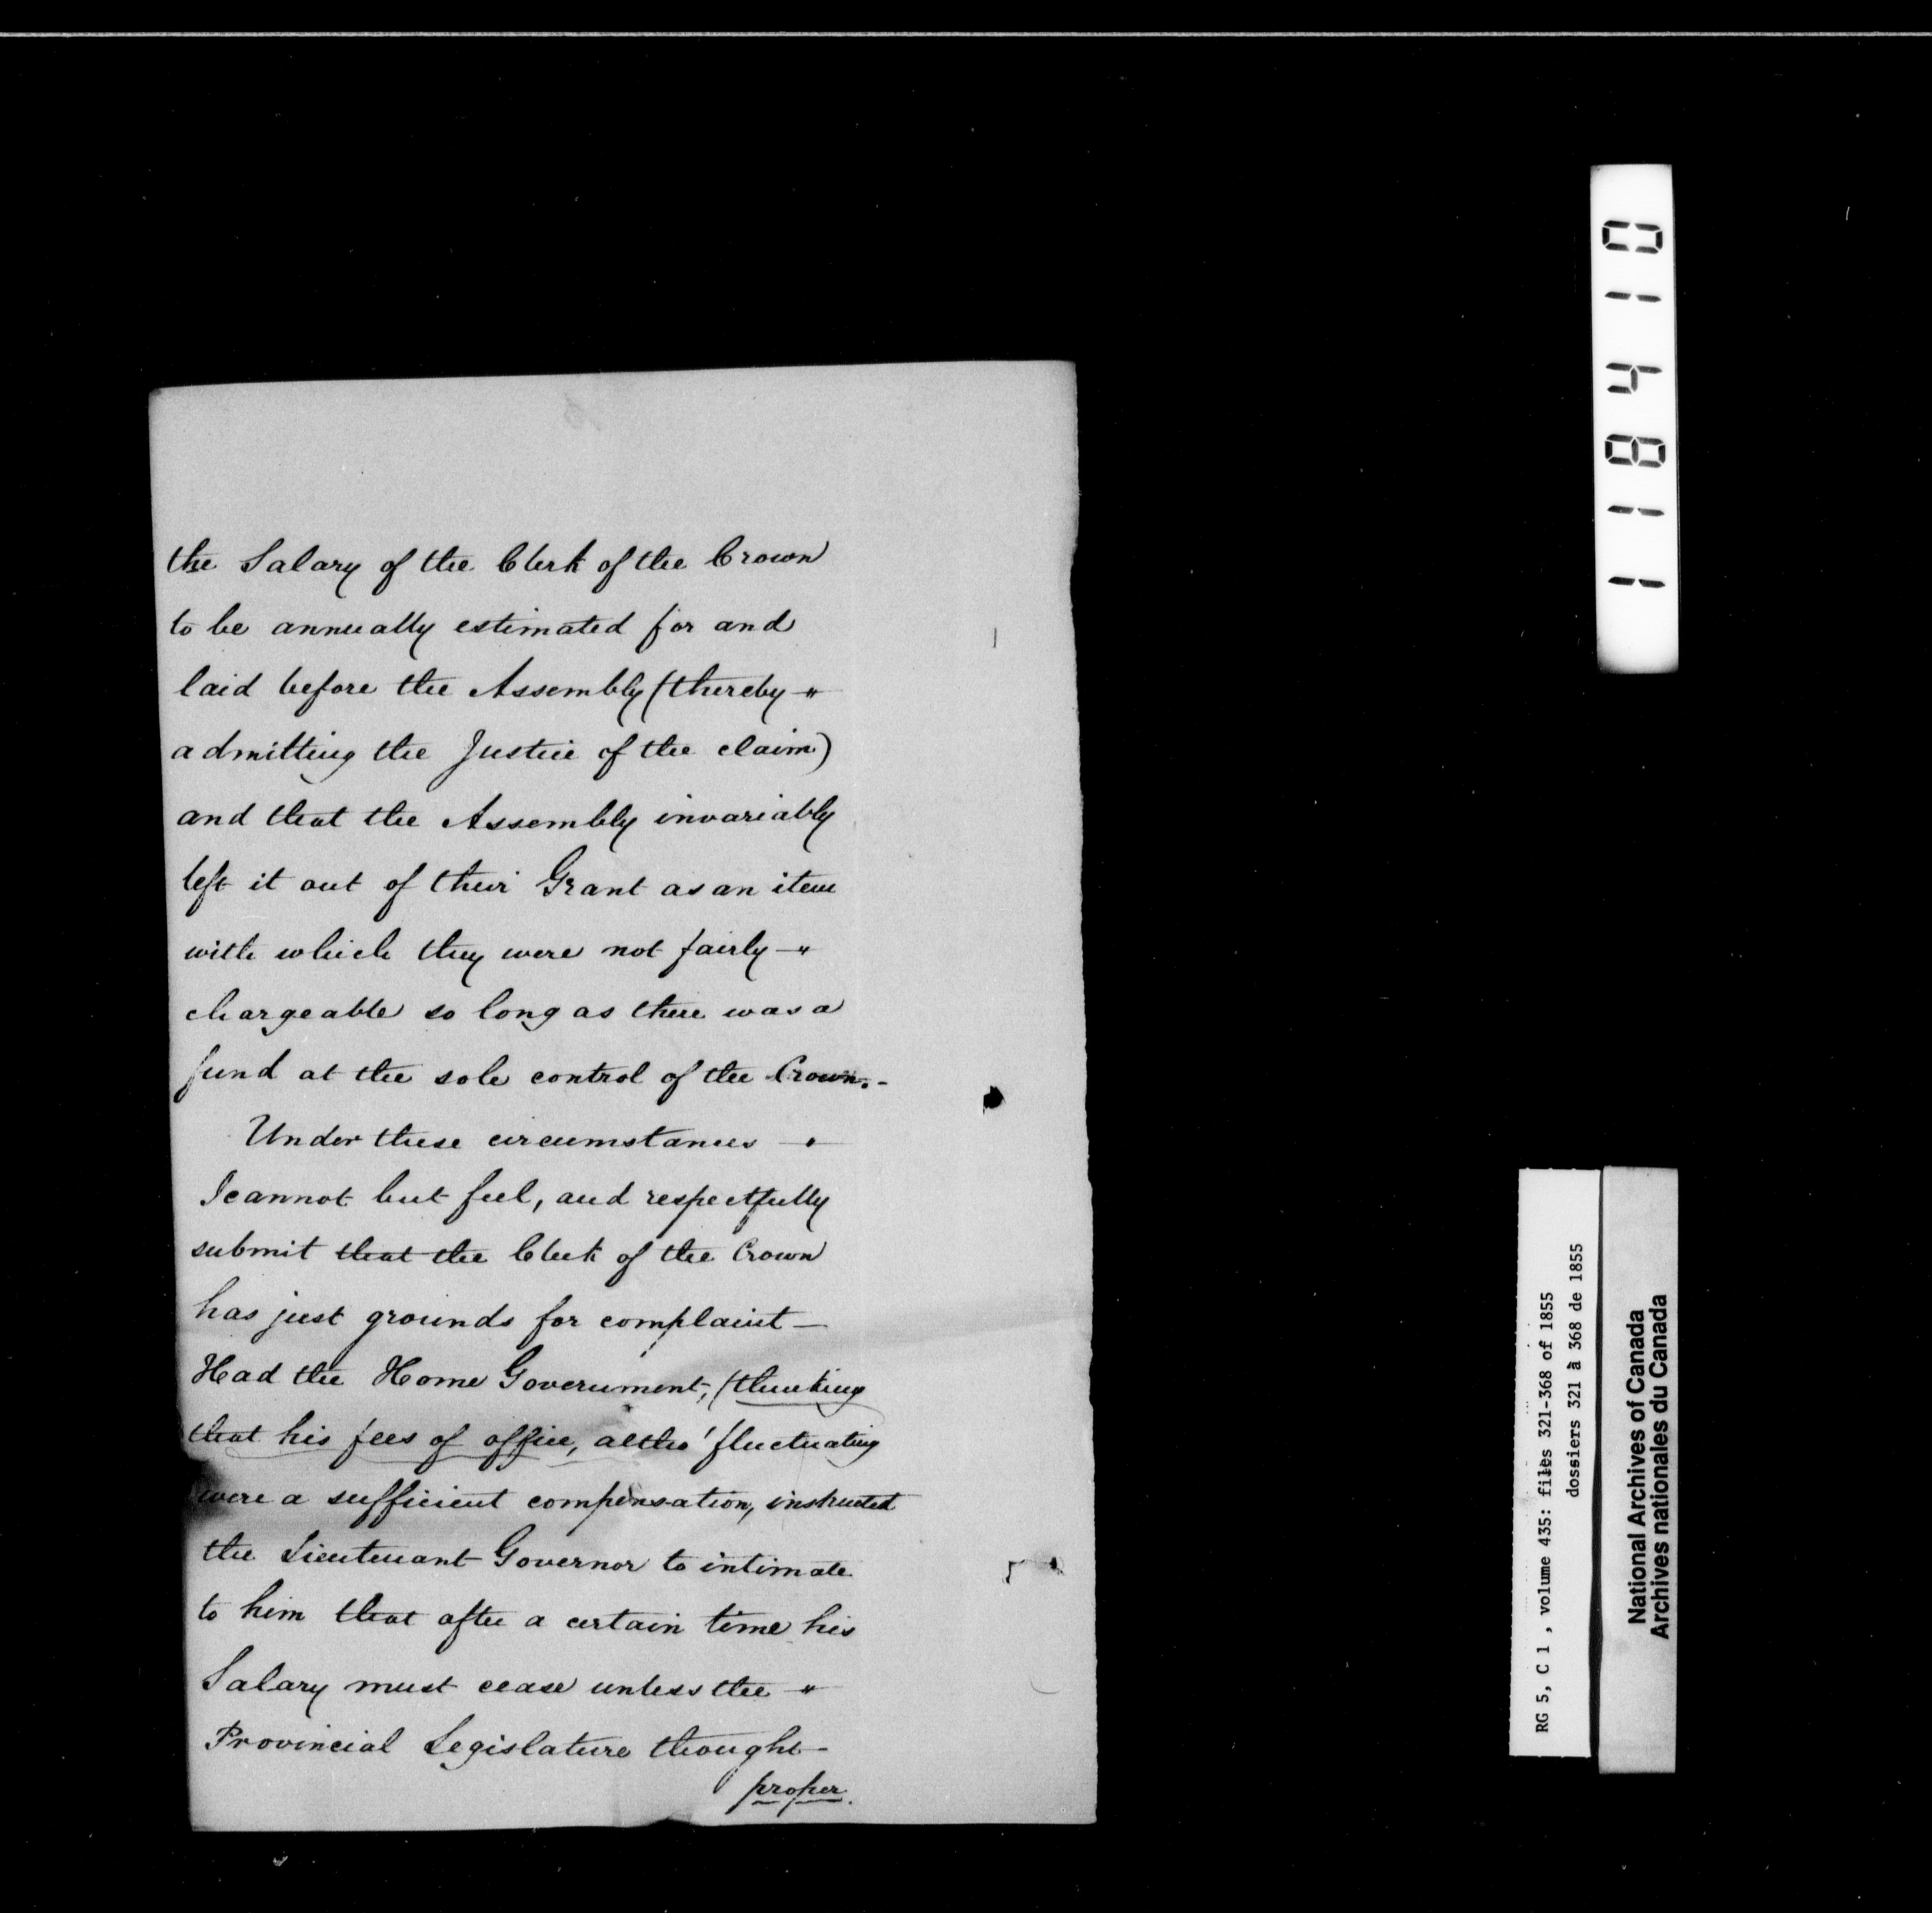 the Salary of the Clerk of the Crown
to be annually estimated for and
laid before the Assembly (thereby -"
admitting the Justice of the claim)
and that the Assembly invariably
left it out of their Grant as an item
with which they were not fairly -"
chargeable so long as there was a
fund at the sole control of the Crown.-
Under these circumstances -"
I cannot but feel, and respectfully
submit that the Clerk of the Crown
has just grounds for complaint -
Had the Home Government, (thinking
that his fees of office, altho' fluctuating
were a sufficient compensation, instructed
the Lieutenant Governor to intimate
to him that after a certain time his
Salary must cease unless the -"
Provincial Legislature thought -
proper.
011811
RG 5, C 1 , volume 435: files 321-368 of 1855
dossiers 321 à 368 de 1855
National Archives of Canada
Archives nationales du Canada